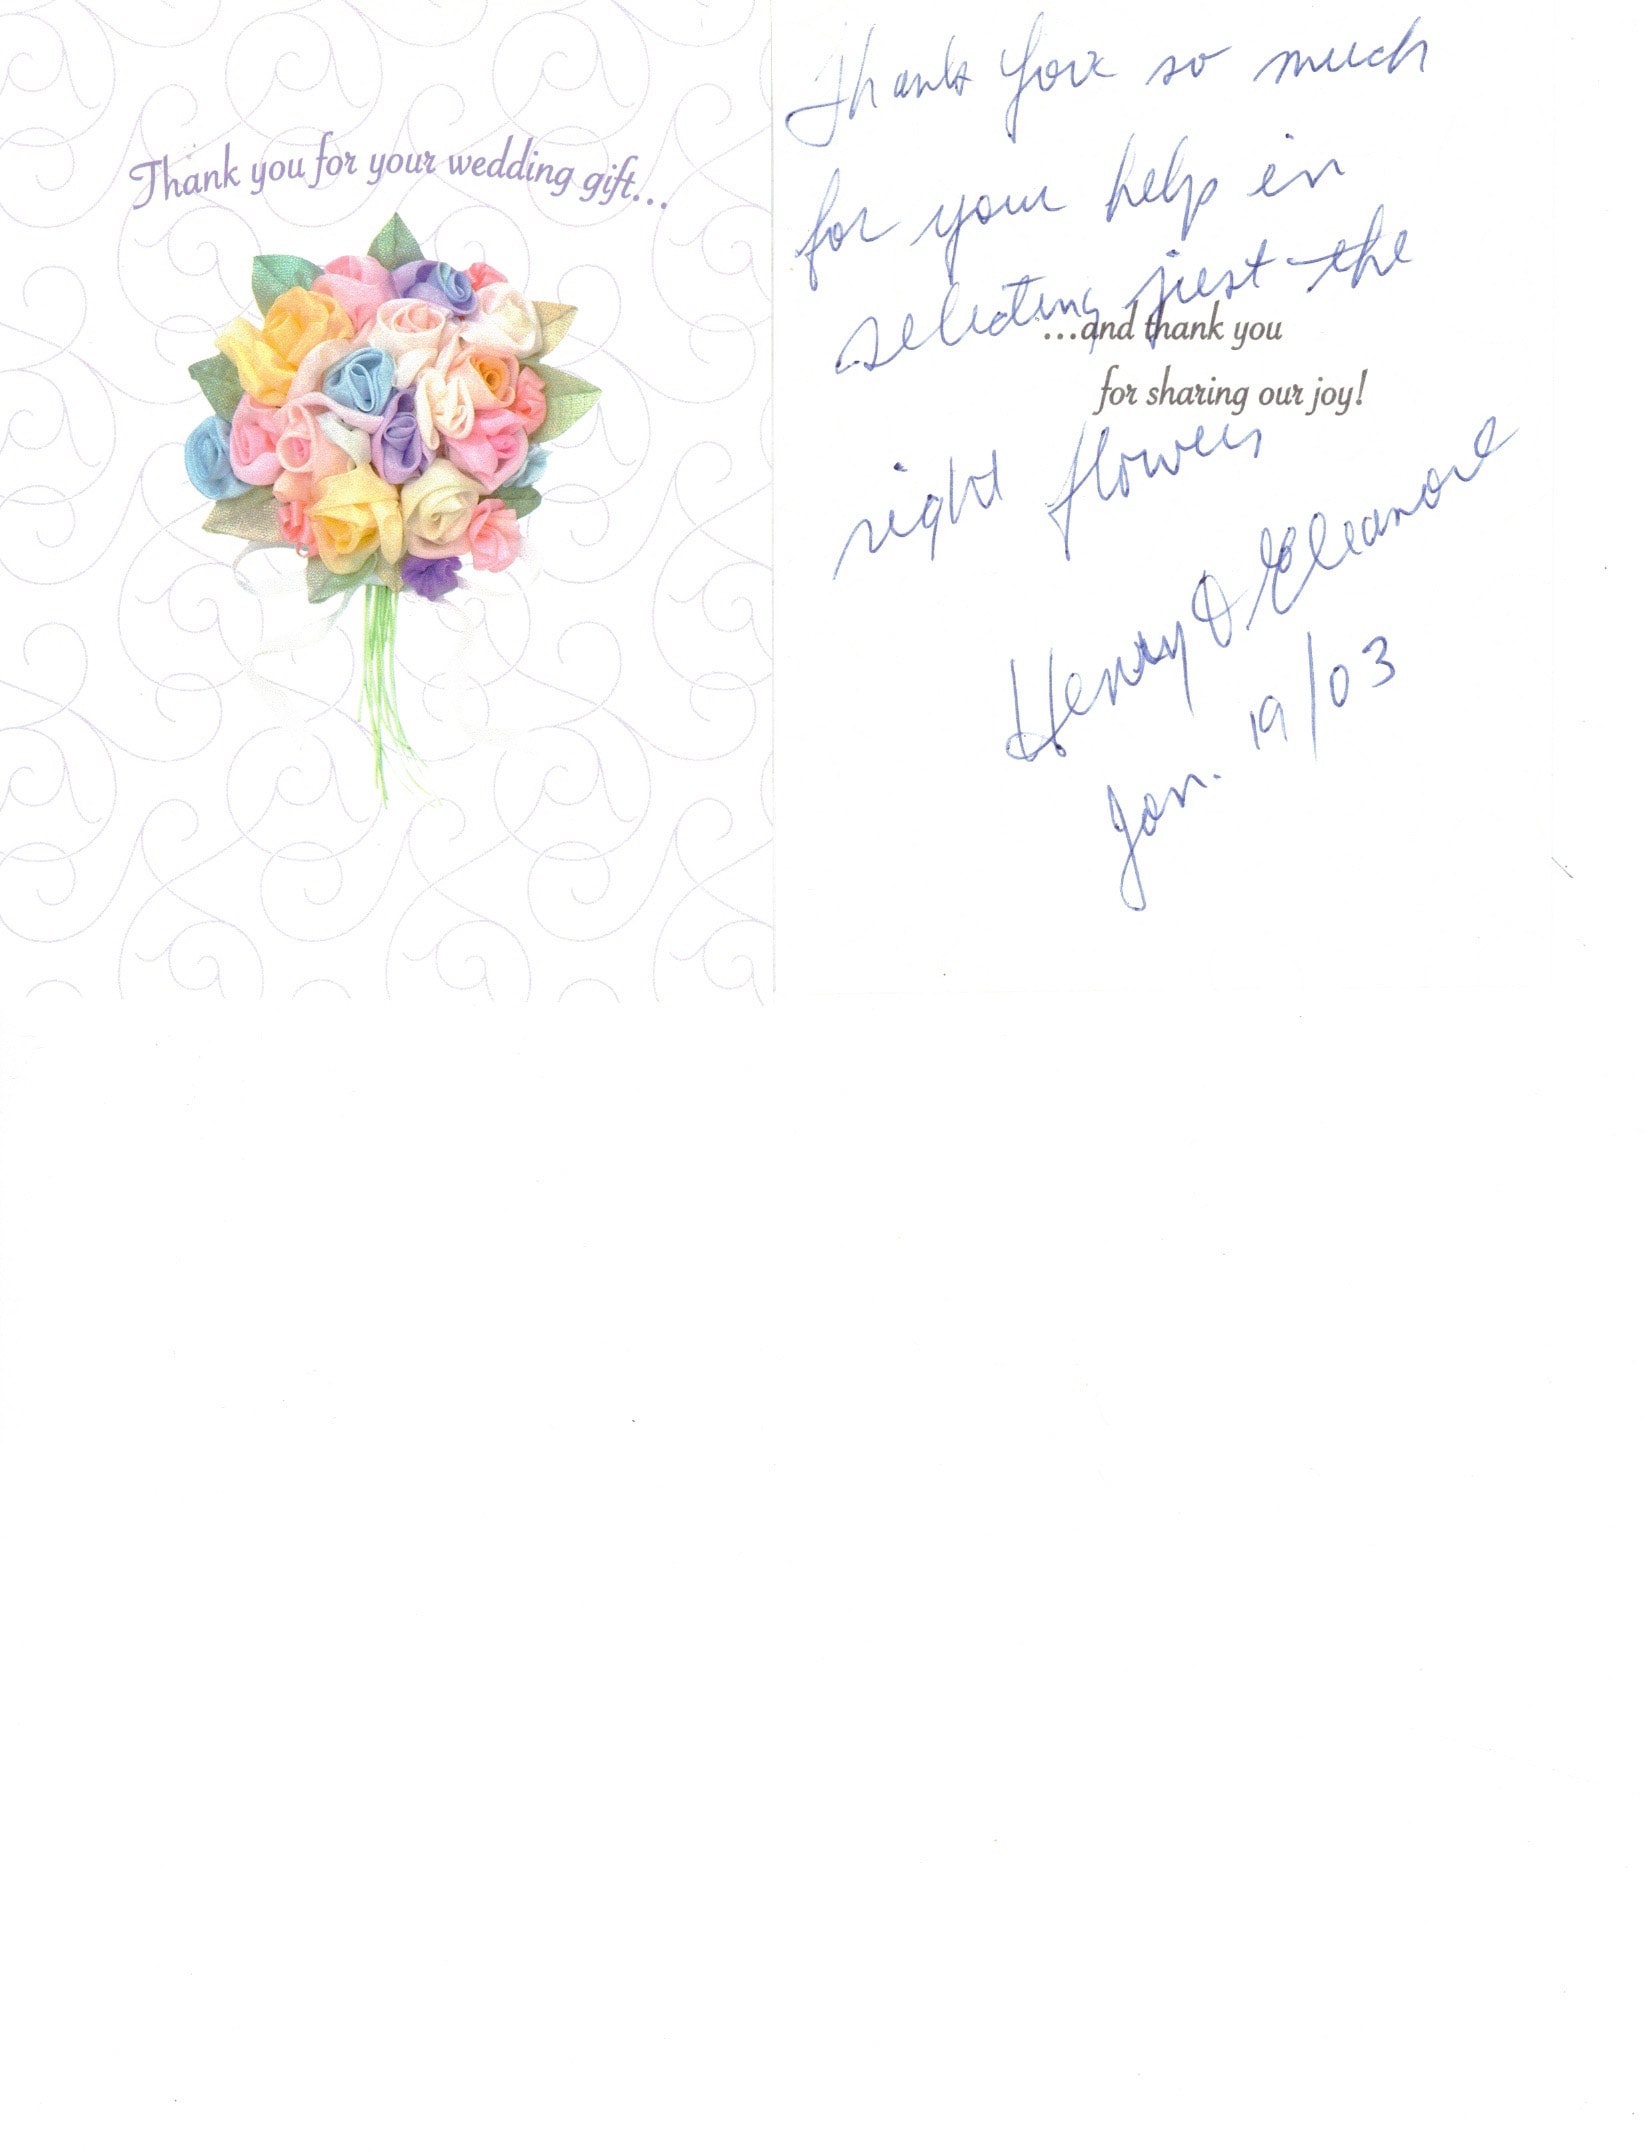 Thank you for your wedding gift...
Thank You so much
for your help in
selecting just the
...and thank you
for sharing our joy!
right flowers
Henry & Eleanore
Jan. 19/03